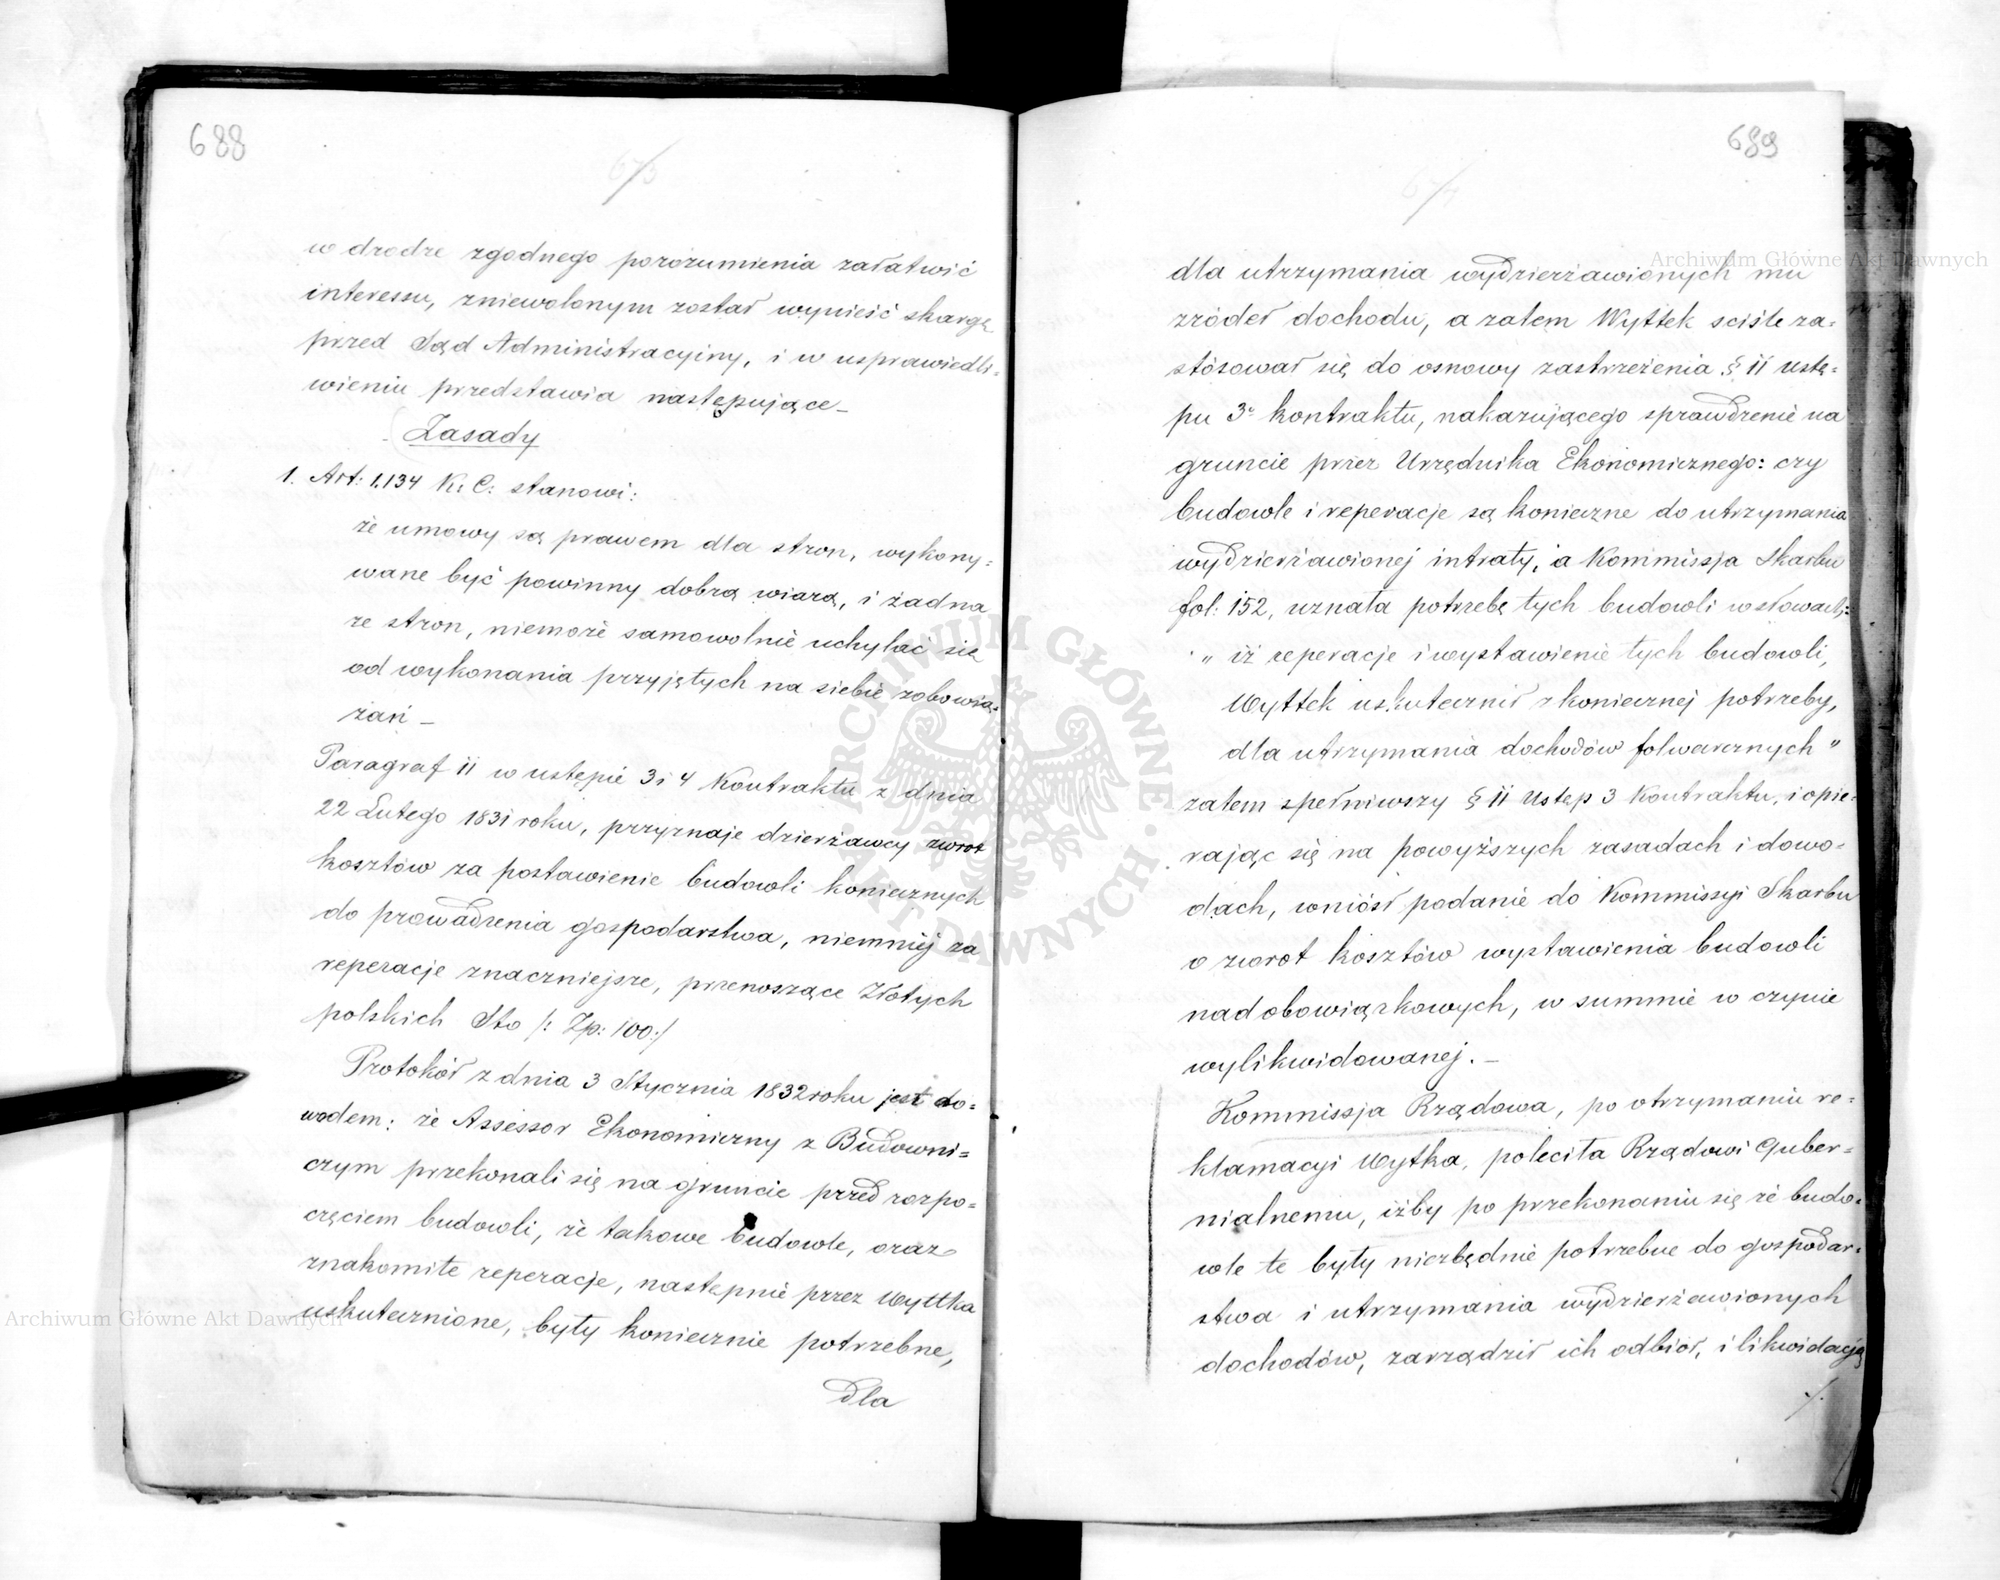 688
673
w drodze zgodnego porozumienia załatwić
interessu, zniewolonym został wynieść skargę
przed Sąd Administracyiny, i w usprawiedli=
wieniu przedstawia następujące_
Zasady
1. Art: 1.134 K: C: stanowi:
że umowy są prawem dla stron, wykony=
wane być powinny dobrą wiarą, i żadna
ze stron, niemoże samowolnie uchylać się
od wykonania przyjętych na siebie zobowią=
zań _
Paragraf 11 w ustępie 3 i 4 Kontraktu z dnia
22 Lutego 1831 roku, przyznaje dzierżawcy zwrot
kosztów za postawienie budowli koniecznych
do prowadzenia gospodarstwa, niemniéj za
reperacje znaczniejsze, przenoszące Złotych
polskich Sto /: Zp: 100:/
Protokół z dnia 3 Stycznia 1832 roku jest do=
wodem: że Assessor Ekonomiczny z Budowni=
czym przekonali się na gruncie przed rozpo=
częciem budowli, że takowe budowle, oraz
znakomite reperacje, następnie przez Wyttka
uskutecznione, były koniecznie potrzebne,
dla
689
674
dla utrzymania wydzierżawionych mu
źródeł dochodu, a zatem Wyttek sciśle za=
stósował się do osnowy zastrzeżenia § 11 ustę=
pu 3º kontraktu, nakazującego sprawdzenie na
gruncie przez Urzędnika Ekonomicznego: czy
budowle i reperacje są konieczne do utrzymania
wydzierżawionej intraty, a Kommissja Skarbu
fol: 152, uznała potrzebę tych budowli w słowach:
„ iż reperacje i wystawienie tych budowli,
Wyttek uskutecznił z koniecznej potrzeby,
dla utrzymania dochodów folwarcznych "
zatem spełniwszy § 11 Ustęp 3 Kontraktu, i opie=
rając się na powyższych zasadach i dowo=
dach, wniósł podanie do Kommissyi Skarbu
o zwrot kosztów wystawienia budowli
nadobowiązkowych, w summie w czynie
wylikwidowanej. _
Kommissja Rządowa, po otrzymaniu re=
klamacyi Wytka, poleciła Rządowi Guber=
nialnemu, iżby po przekonaniu się że budo=
wle te były niezbędnie potrzebne do gospodar=
stwa i utrzymania wydzierżawionych
dochodów, zarządził ich odbiór, i likwidację
./.
Archiwum Główne Akt Dawnych
Archiwum Główne Akt Dawnych
ARCHIWUM GŁÓWNE AKT DAWNYCH